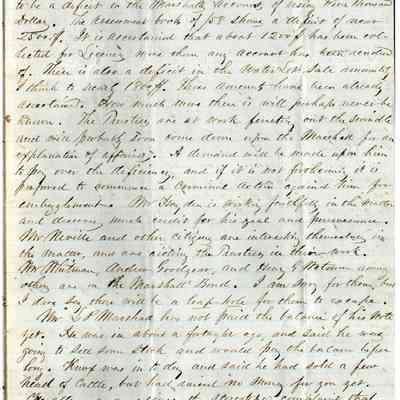 to be a deficit in the Marshall's accounts of using Five thousand
Dollars. The Assessment book of 58 shows a deficit of near
2500$. It is ascertained that about 1200$ has been col-
lected for Licenses more than any account has been rendered
of. There is also a deficit in the Water Lot Sale amounting
I think to nearly 1800$. These amounts have been already
ascertained. How much more there is will perhaps never be
known. The Trustees are at work ferreting out the swindle
and will probably soon come down upon the Marshall for an
explanation of affairs. A demand will be made upon him
to pay over the deficiency, and if it is not forthcoming it is
proposed to commence a Criminal Action against him for
embezzlement. Mr Hayden is working faithfully in the matter
and deserves much credit for his zeal and perseverance.
Mr Neville and other citizens are interesting themselves in
the matter, and are aiding the Trustees in their work.
Mr Whitman, Andrew Goodyear, and Henry among
others are on the Marshall's Bond. I am sorry for them, but
I dare say there will be a loop-hole for them to escape.
Mr Marshall has not paid the balance of his note
yet. He was in about a fortnight ago, and said he was
going to sell some stock and would pay the balance before
long. Knox was in to day and said he had sold a few
head of Cattle, but had received no money for you yet.
complaint that